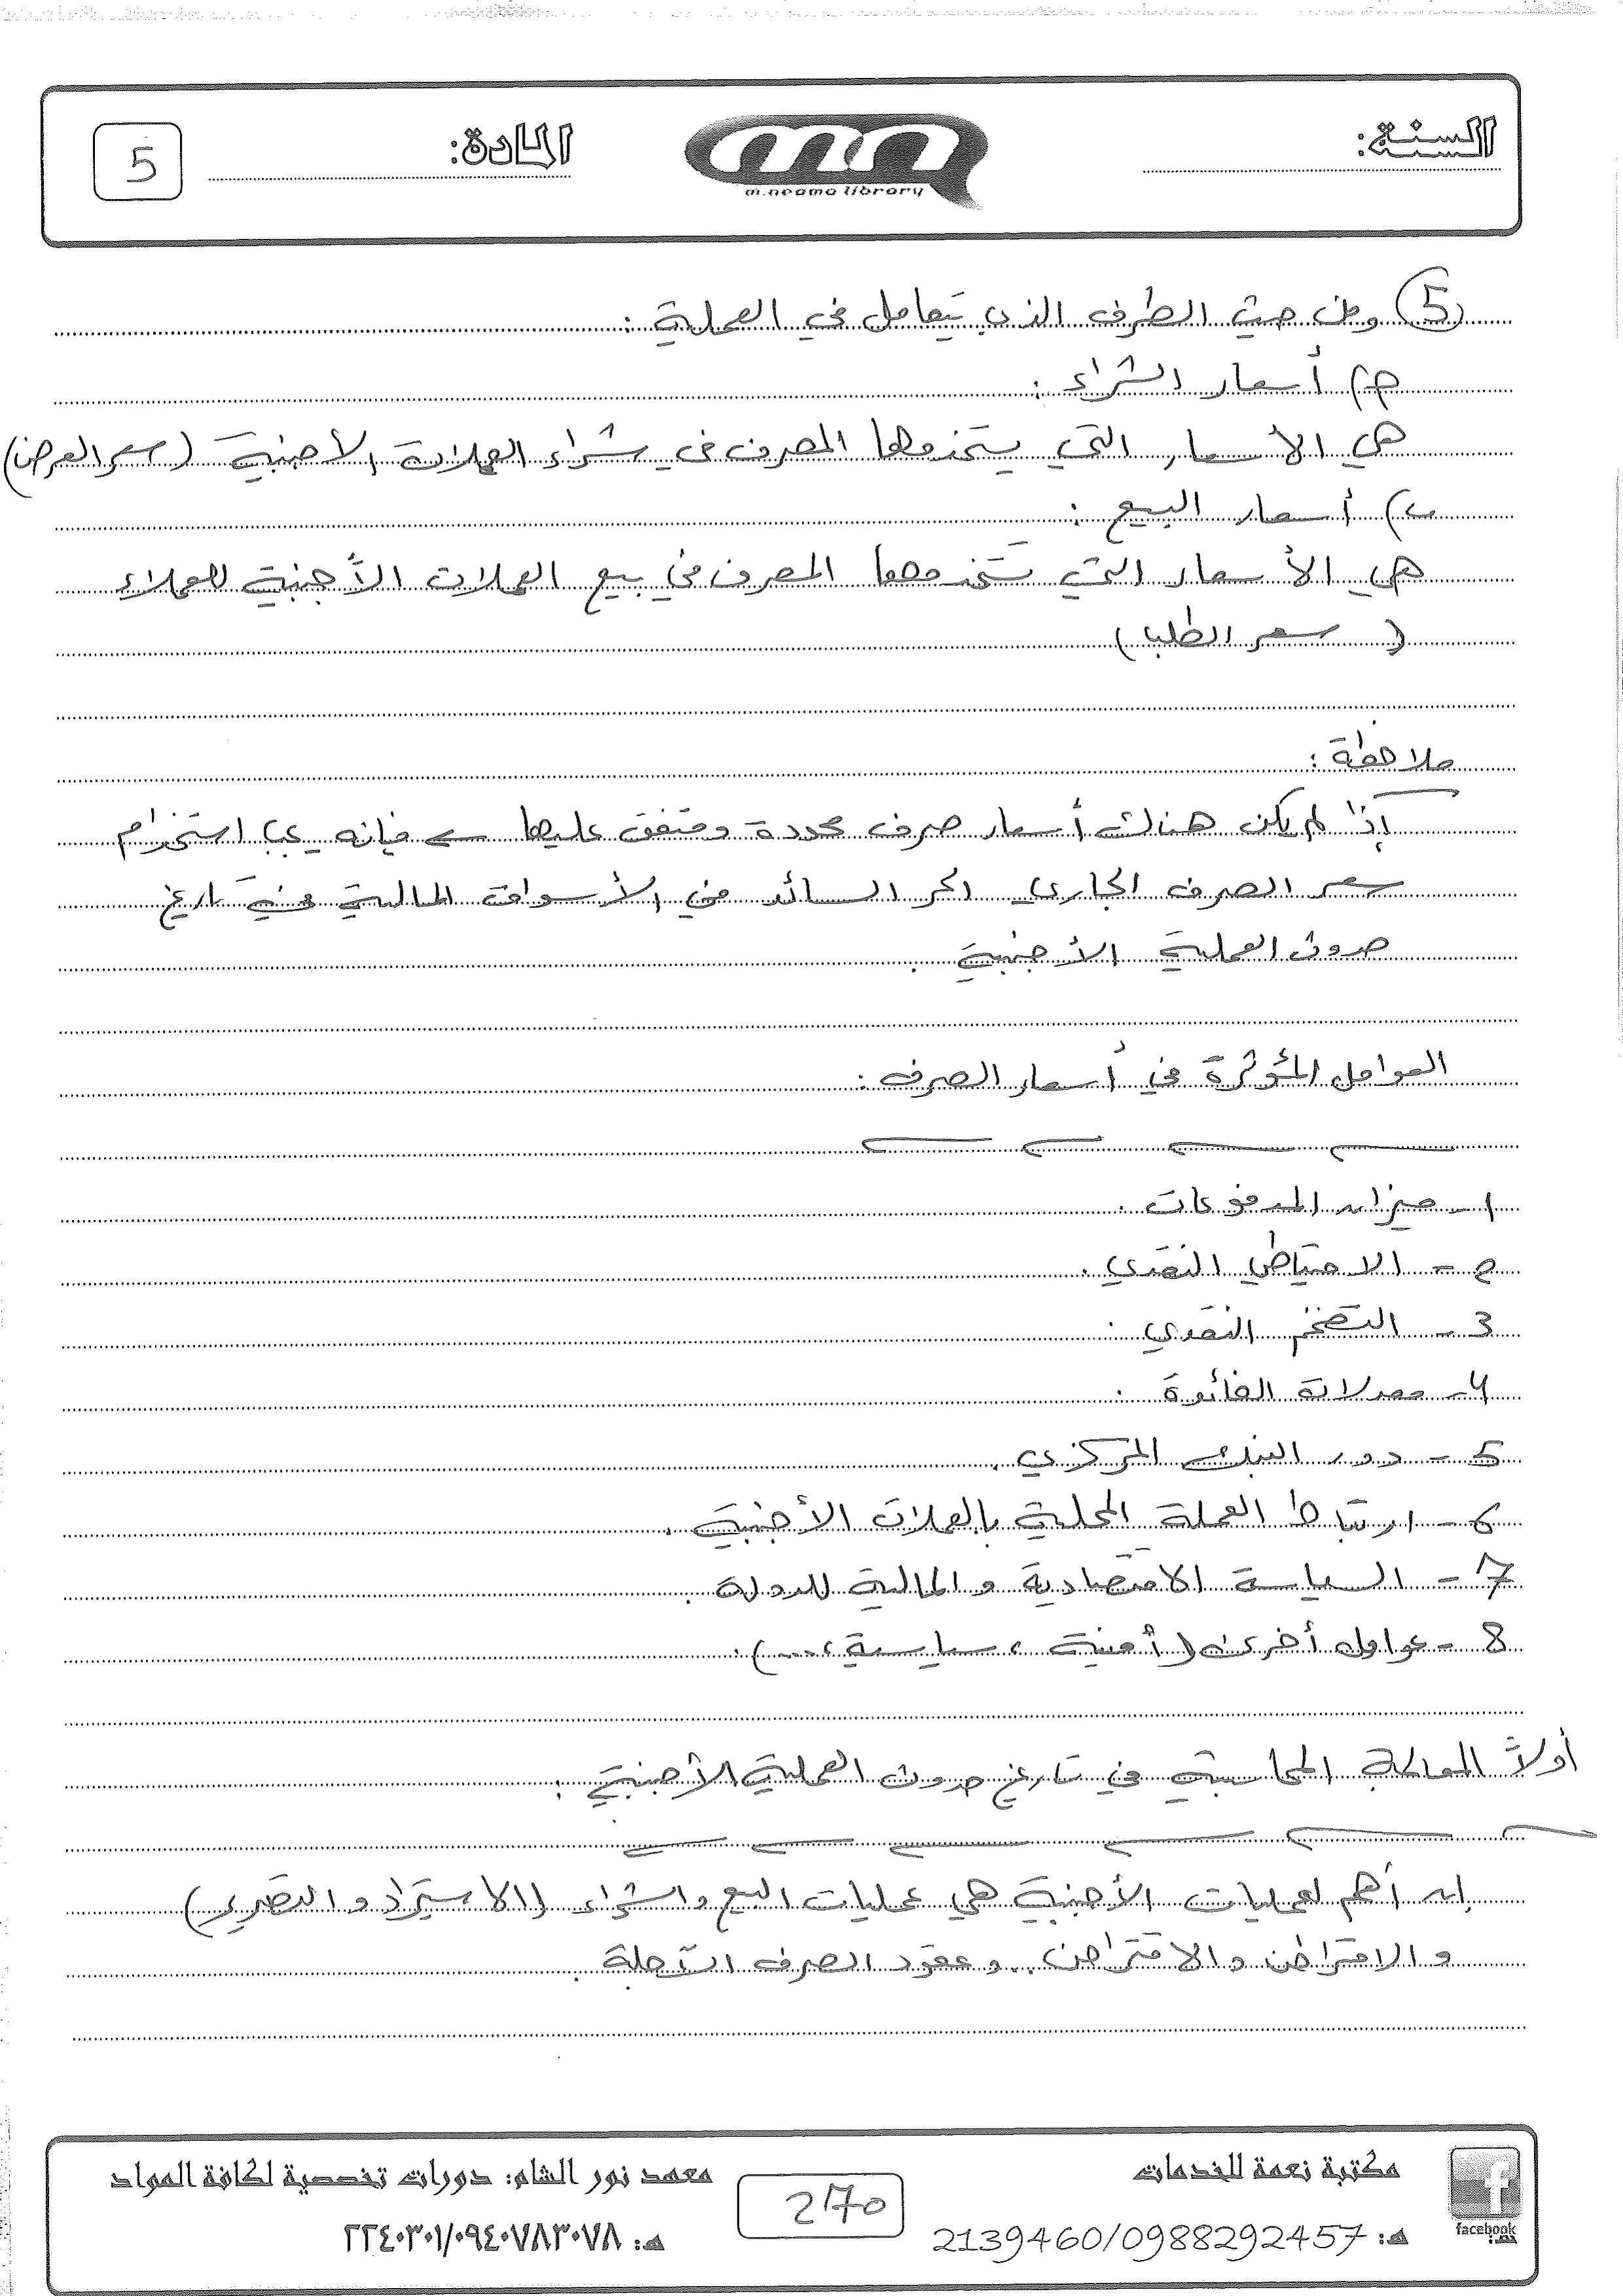 السنة:
m.neama library
المادة:
5
5) ومن حيث الطرف الذي يتعامل في العملية :
أ) أسعار الشراء :
هي الأسعار التي يستخدمها المصرف في شراء العملات الأجنبية (سعر العرض)
ب) أسعار البيع :
هي الأسعار التي يستخدمها المصرف في بيع العملات الأجنبية للعملاء
( سعر الطلب )
ملاحظة :
إذا لم يكن هناك أسعار صرف محددة ومتفق عليها ← فإنه يجب استخدام
سعر الصرف الجاري الحر السائد في الأسواق المالية في تاريخ
حدوث العملية الأجنبية .
العوامل المؤثرة في أسعار الصرف :
1- ميزان المدفوعات .
2- الاحتياطي النقدي .
3- التضخم النقدي .
4- معدلات الفائدة .
5- دور البنك المركزي .
6- ارتباط العملة المحلية بالعملات الأجنبية .
7- السياسة الاقتصادية والمالية للدولة .
8- عوامل أخرى ( أمنية ، سياسية ، ... ) .
أولاً المعالجة المحاسبية في تاريخ حدوث العملية الأجنبية :
إن أهم لعمليات الأجنبية هي عمليات البيع والشراء (الاستيراد والتصدير)
والاقتراض والاقتراض .. وعقود الصرف الآجلة .
مكتبة نعمة للخدمات
هـ: 2139460/0988292457
facebook
270
معهد نور الشام: دورات تخصصية لكافة المواد
هـ: ٢٢٤٠٣٠١/٠٩٤٠٧٨٣٠٧٨